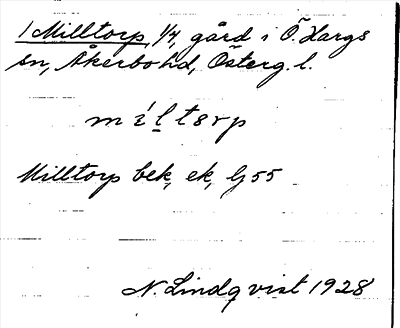 1 Milltorp, 1/4, gård i Ö. Hargs
sn, Åkerbo hd, Österg. l.
mi&#x301;ḻtɘrp
Milltorp bek, ek, Gj 55
N. Lindqvist 1928